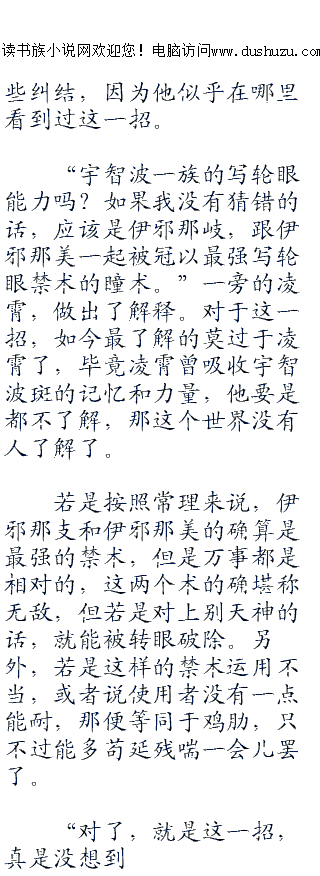 读书族小说网欢迎您！电脑访问www.dushuzu.com
些纠结，因为他似乎在哪里
看到过这一招。
“宇智波一族的写轮眼
能力吗？如果我没有猜错的
话，应该是伊邪那岐，跟伊
邪那美一起被冠以最强写轮
眼禁术的瞳术。”一旁的凌
霄，做出了解释。对于这一
招，如今最了解的莫过于凌
霄了，毕竟凌霄曾吸收宇智
波斑的记忆和力量，他要是
都不了解，那这个世界没有
人了解了。
若是按照常理来说，伊
邪那支和伊邪那美的确算是
最强的禁术，但是万事都是
相对的，这两个术的确堪称
无敌，但若是对上别天神的
话，就能被转眼破除。另
外，若是这样的禁术运用不
当，或者说使用者没有一点
能耐，那便等同于鸡肋，只
不过能多苟延残喘一会儿罢
了。
“对了，就是这一招，
真是没想到